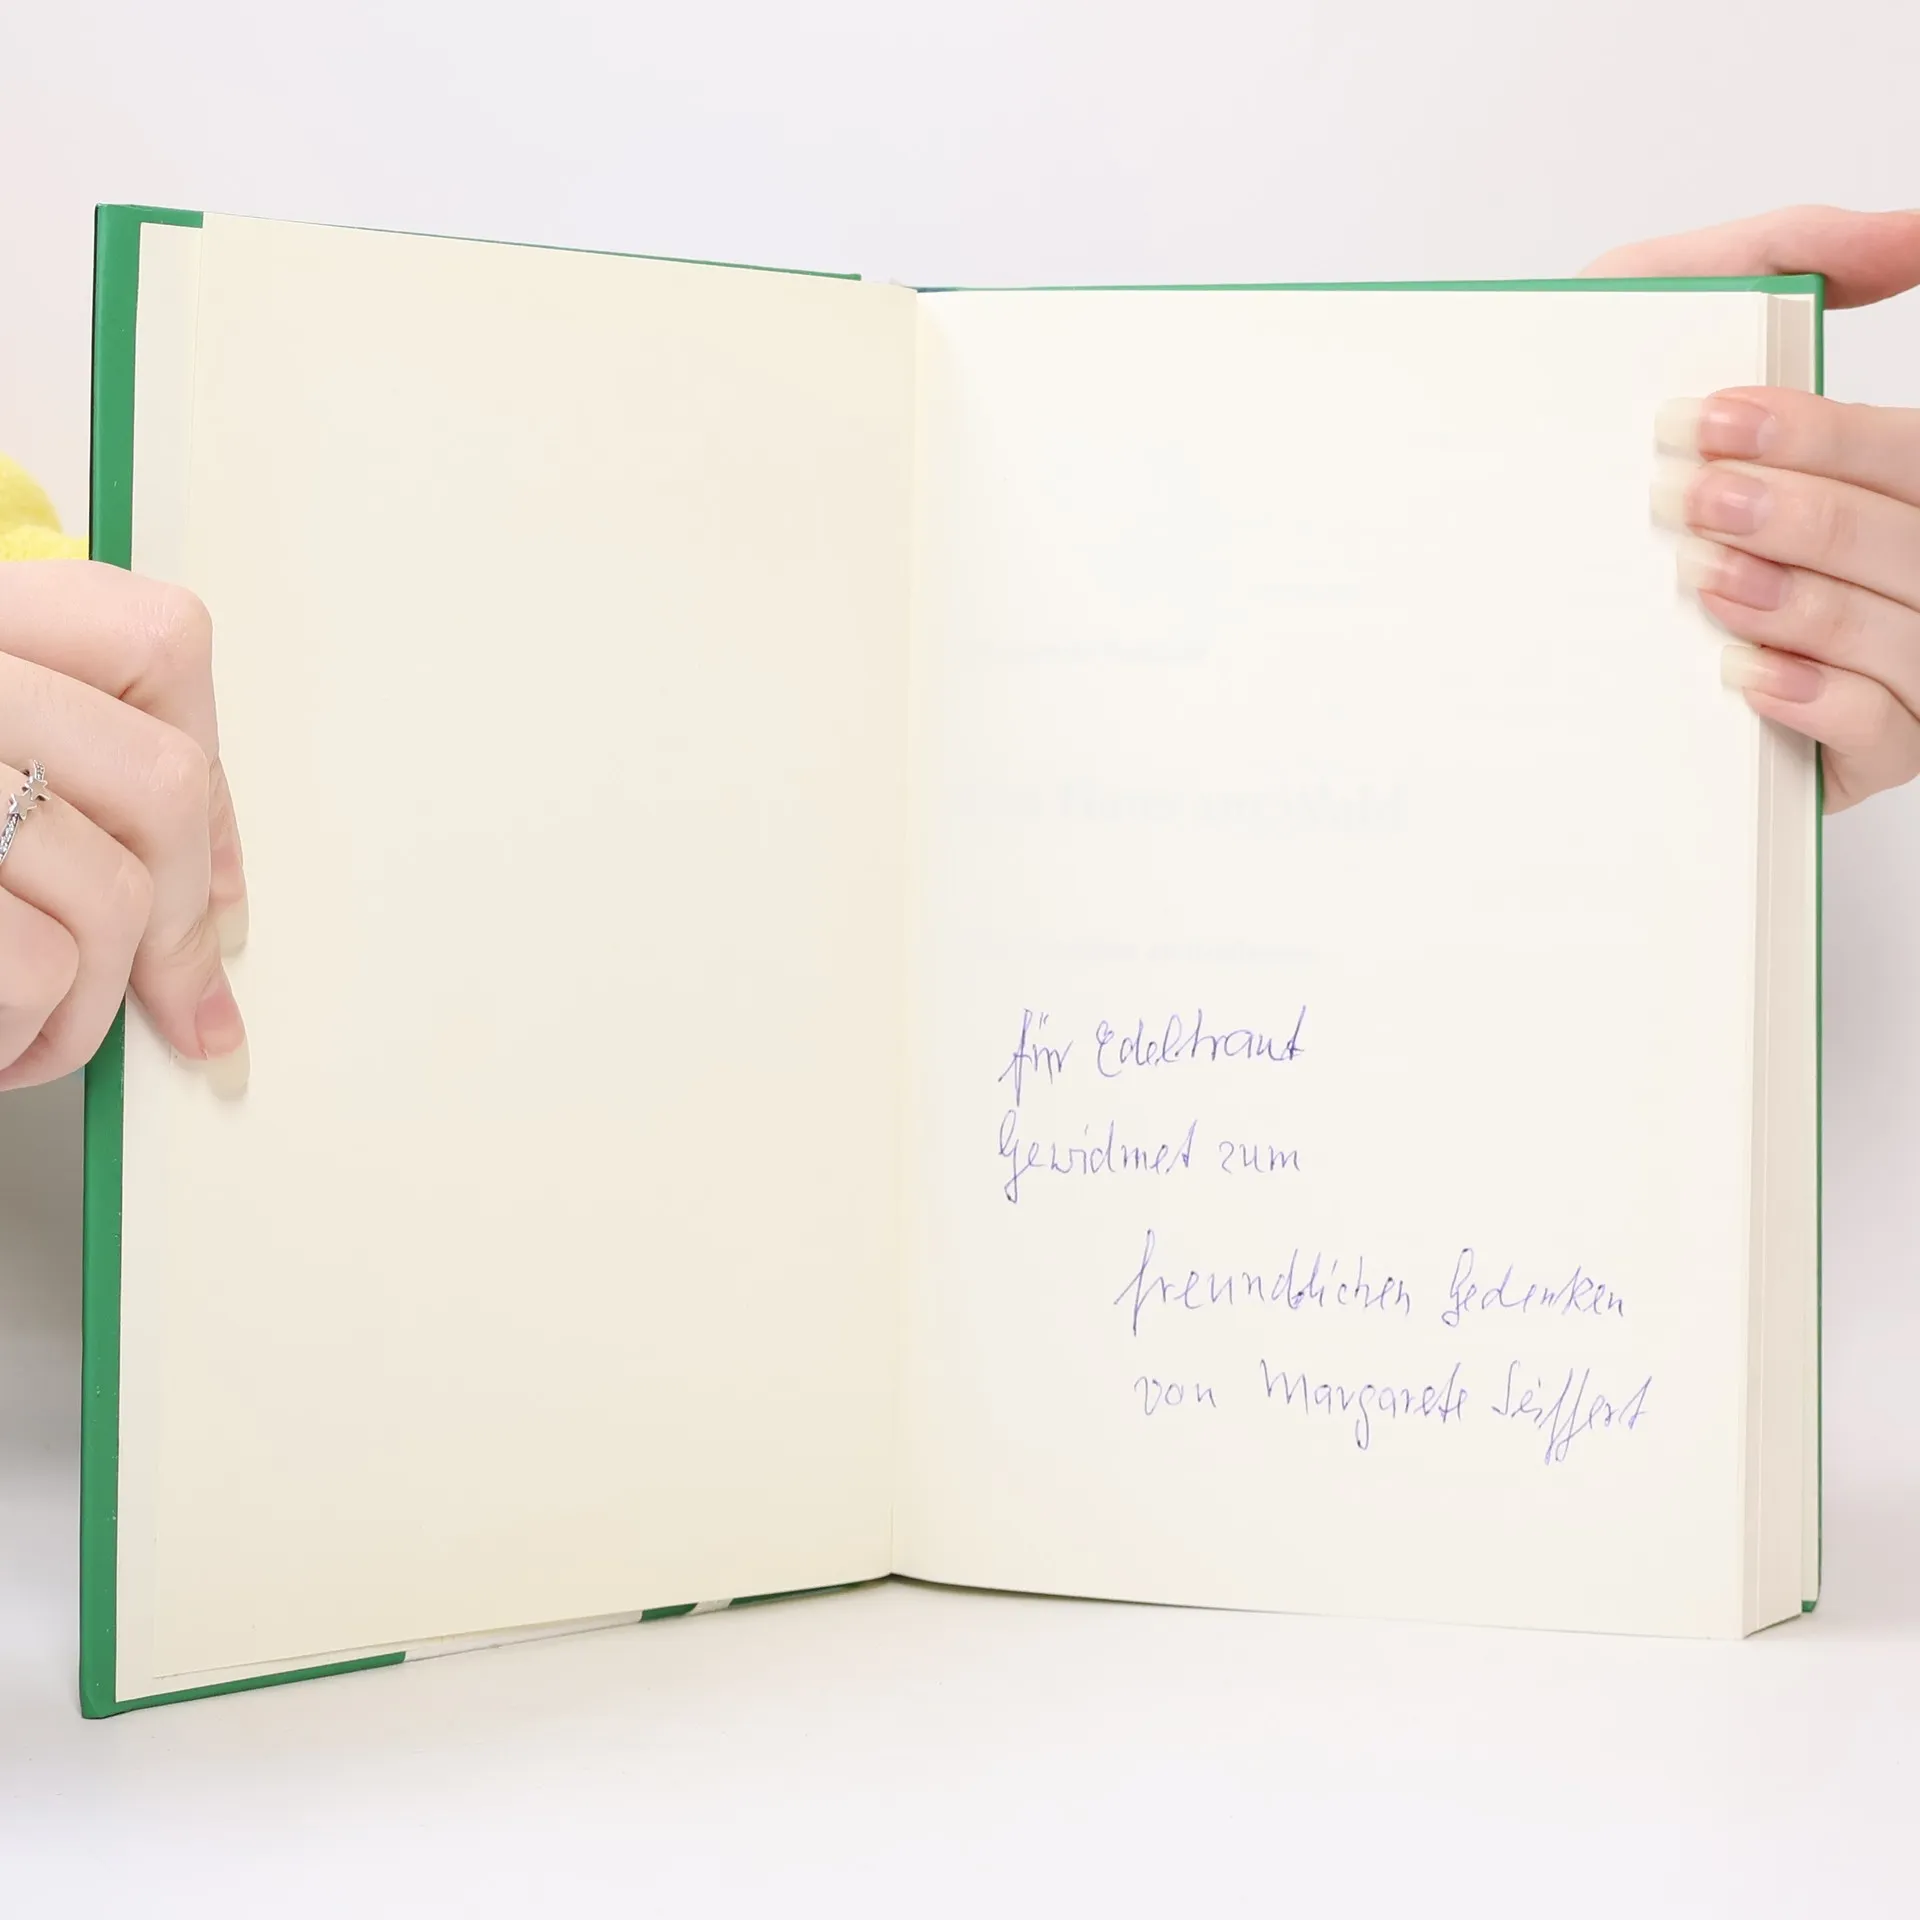 für Edeltraut
Gewidmet zum
freundlichen Gedenken
von Margarete Seiffert